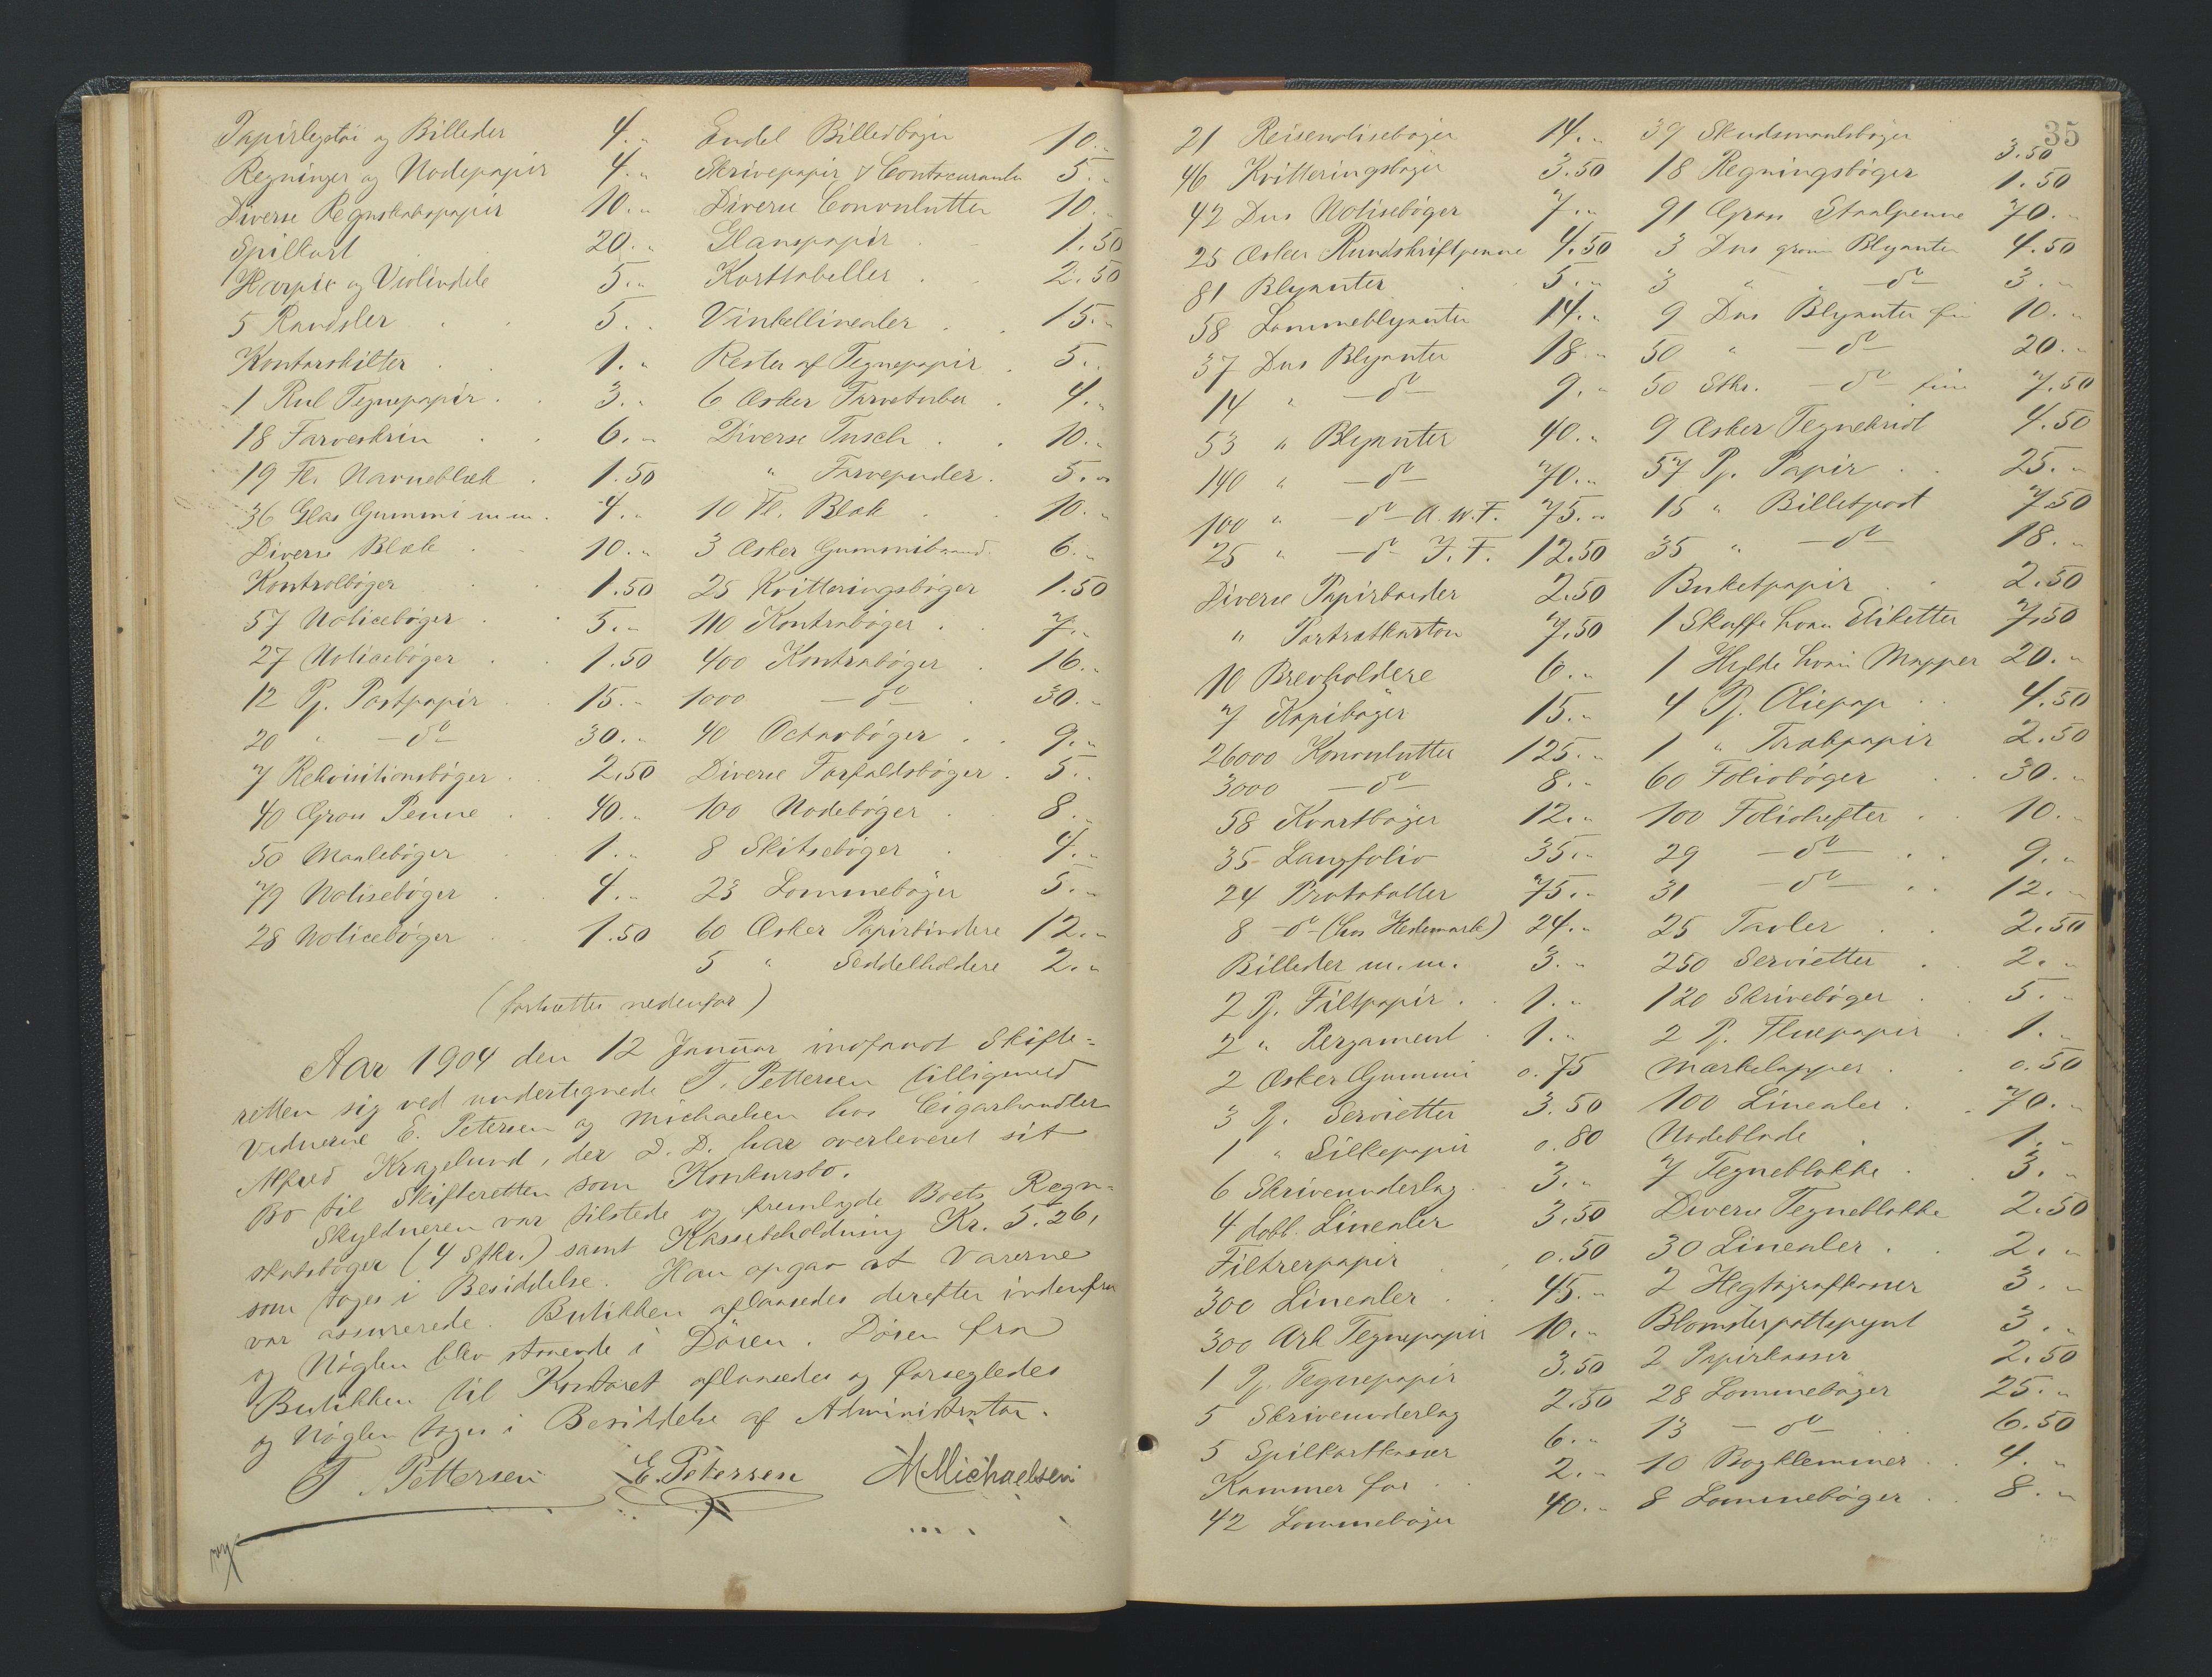 Papirlegetøi og Billeder 4.„
Regninger og Nodepapir 4.„
Diverse Regnskabspapir 10.„
Spilkort 20.„
Harpix og Violindele 5.„
5 Randsler 5.„
Kontorskilter 1.„
1 Rul Tegnepapir 3.„
18 Farveskrin 6.„
19 Fl. Navneblæk 1.50
36 Glas Gummi m.m. 4.„
Diverse Blæk 10.„
Kontrolbøger 1.50
57 Noticebøger 5.„
27 Noticebøger 1.50
12 Pj. Postpapir 15.„
20 „ —do— 30.„
7 Rekvisitionsbøger 2.50
40 Gros Penne 40.„
50 Maalebøger 1.„
79 Notisebøger 4.„
28 Noticebøger 1.50
Endel Billedbøger 10.„
Skrivepapir & Contocuranter 5.„
Diverse Convolutter 10.„
Glanspapir 1.50
Korttabeller 2.50
Vinkellinealer 15.„
Rester af Tegnepapir 5.„
6 Æsker Farvetuber 4.„
Diverse Tusch 10.„
„ Farvepuder 5.„
10 Fl. Blæk 10.„
3 Æsker Gummibaand 6.„
25 Kvitteringsbøger 1.50
110 Kontrabøger 7.„
400 Kontrabøger 16.„
1000 —do— 30.„
40 Octavbøger 9.„
Diverse Forfaldsbøger 5.„
100 Nodebøger 8.„
8 Skitsebøger 4.„
23 Lommebøger 5.„
60 Æsker Papirbindere 12.„
5 „ Seddelholdere 2.„
(fortsættes nedenfor)
Aar 1904 den 12 Januar indfandt Skifte-
retten sig ved undertegnede T. Pettersen tilligemed
Vidnerne E. Petersen og Michaelsen hos Cigarhandler
Alfred Kragelund, der D. D. har overleveret sit
Bo til Skifteretten som Konkursbo.
Skyldneren var tilstede og fremlagde Boets Regn-
skabsbøger (4 Stkr.) samt Kassebeholdning Kr. 5.26,
som toges i Besiddelse. Han opgav at Varerne
var assurerede. Butikken aflaasedes derefter indenfra
og Nøglen blev staaende i Døren. Døren fra
Butikken til Kontoret aflaasedes og forsegledes
og Nøglen toges i Besiddelse af Administrator.
T Pettersen E. Petersen M Michaelsen
35
21 Reisenotisebøger 14.„
46 Kvitteringsbøger 3.50
42 Dus Notisebøger 7.„
25 Æsker Rundskriftpenne 4.50
81 Blyanter 5.„
58 Lommeblyanter 14.„
37 Dus Blyanter 18.„
14 „ —do— 9.„
53 „ Blyanter 40.„
140 „ —do— 70.„
100 „ —do— A.W.F. 75.„
25 „ —do— J.F. 12.50
Diverse Papirborder 2.50
„ Portrætkarton 7.50
10 Brevholdere 6.„
7 Kopibøger 15.„
26000 Konvolutter 125.„
3000 —do— 8.„
58 Kvartbøger 12.„
35 Langfolio 35.„
24 Protokoller 75.„
8 —do— (hos Hedemark) 24.„
Billeder m.m. 3.„
2 Pj. Filtpapir 1.„
2 „ Pergament 1.„
2 Æsker Gummi 0.75
3 Pj. Servietter 3.50
1 „ Silkepapir 0.80
6 Skriveunderlag 3.„
4 dobb. Linealer 3.50
Filtrerpapir 0.50
300 Linealer 45.„
300 Ark Tegnepapir 10.„
1 Pj. Tegnepapir 3.50
5 Skriveunderlag 2.50
5 Spilkortkasser 6.„
Kammer for 2.„
42 Lommebøger 40.„
39 Skudsmaalsbøger 3.50
18 Regningsbøger 1.50
91 Gros Staalpenne 70.„
3 Dus grøn Blyanter 4.50
3 „ „ —do— 3.„
9 Dus Blyanter fin 10.„
50 „ —do— 20.„
50 Stkr. —do— fine 7.50
9 Æsker Tegnekridt 4.50
57 Pj. Papir 25.„
15 „ Billetpost 7.50
35 „ —do— 18.„
Buketpapir 2.50
1 Skuffe hvori Etiketter 7.50
1 Hylde hvori Mapper 20.„
4 Pj. Oliepap 4.50
1 „ Tobakpapir 2.50
60 Foliobøger 30.„
100 Foliohefter 10.„
29 —do— 9.„
31 —do— 12.„
25 Tavler 2.50
250 Servietter 2.„
120 Skrivebøger 5.„
2 Pj. Fluepapir 1.„
Mærkelapper 0.50
100 Linealer 70.„
Nodeblade 1.„
7 Tegneblokke 3.„
Diverse Tegneblokke 2.50
30 Linealer 2.„
2 Hegtografkasser 3.„
Blomsterpottepynt 3.„
2 Papirkasser 2.50
28 Lommebøger 25.„
13 —do— 6.50
10 Bogklemmer 4.„
8 Lommebøger 8.„